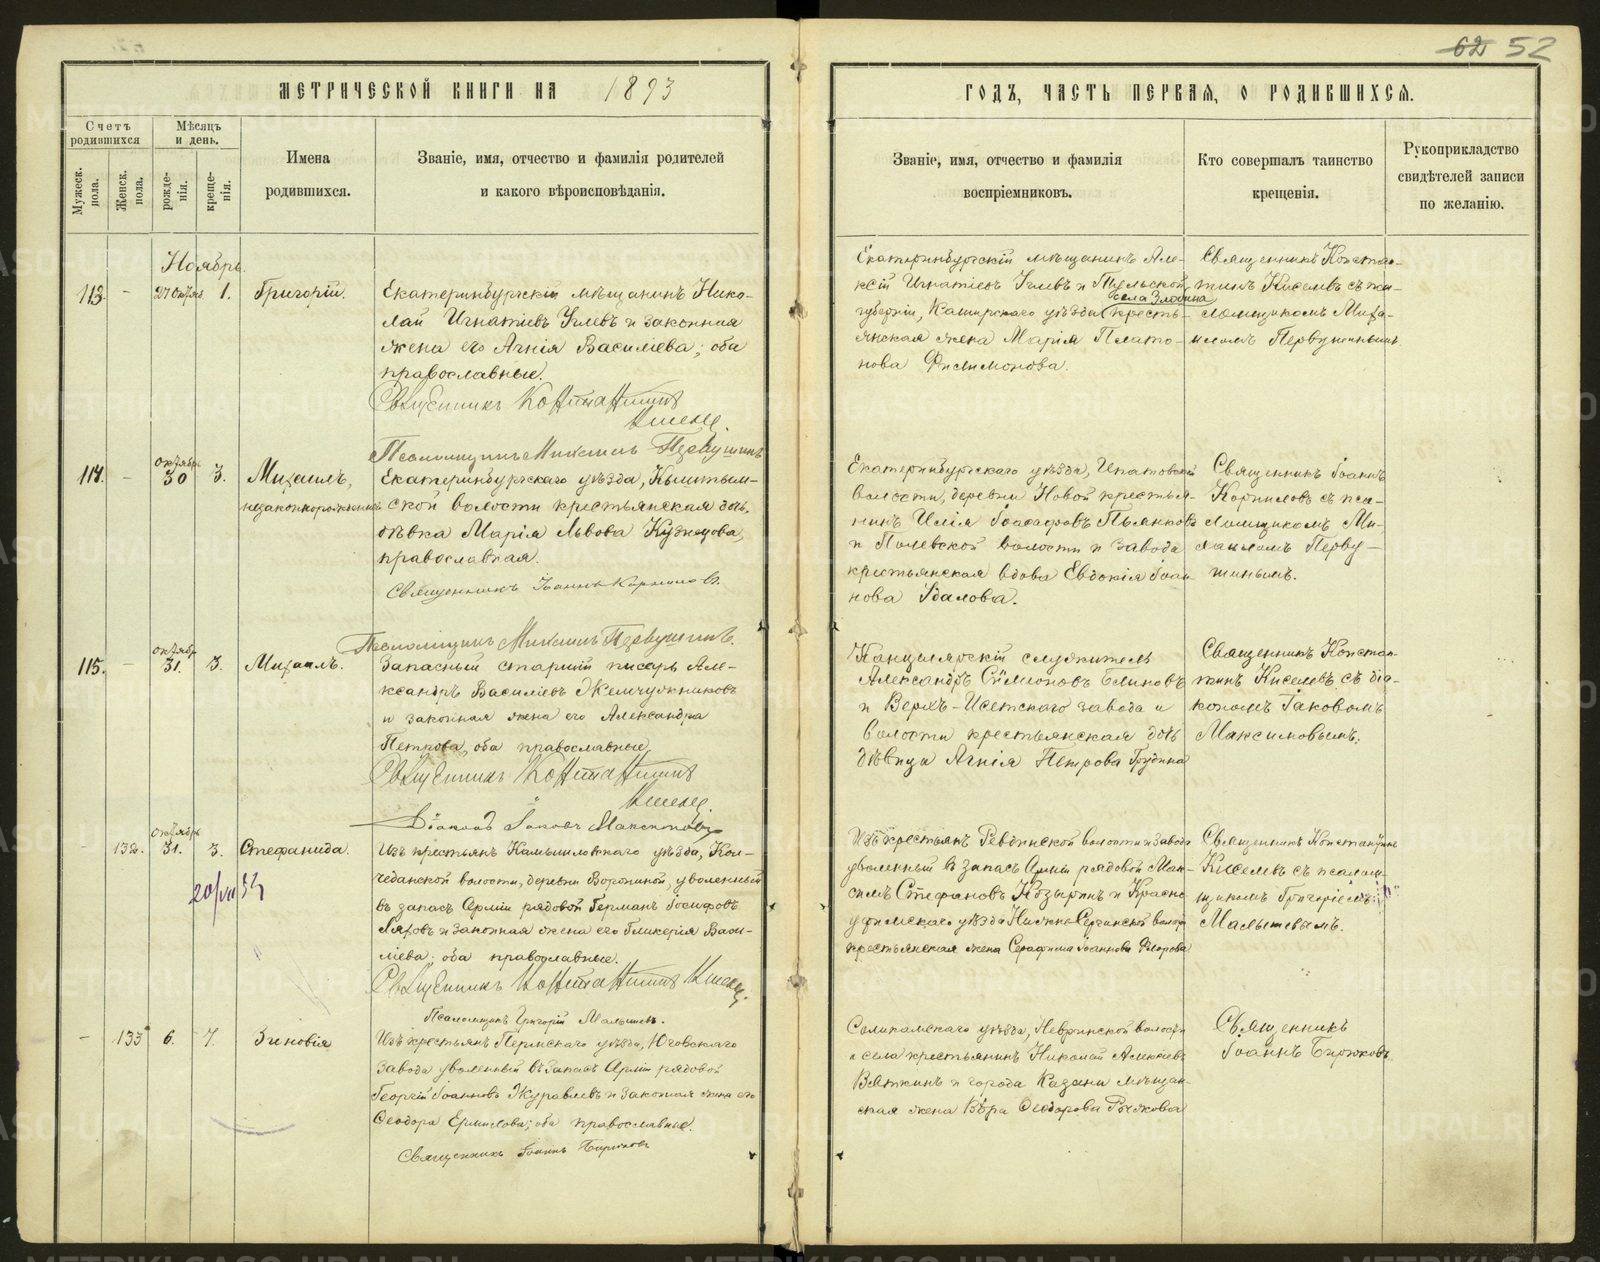 62 52
МЕТРИЧЕСКОЙ КНИГИ НА 1893
ГОДЪ, ЧАСТЬ ПЕРВАЯ, О РОДИВШИХСЯ.
Счетъ родившихся
Мужеск. пола.
Женск. пола.
Мѣсяцъ и день.
рожде-нія.
креще-нія.
Имена
родившихся.
Званіе, имя, отчество и фамилія родителей
и какого вѣроисповѣданія.
Званіе, имя, отчество и фамилія
воспріемниковъ.
Кто совершалъ таинство
крещенія.
Рукоприкладство
свидѣтелей записи
по желанію.
Ноябрь.
113. - 27 Октяб. 1. Григорій.
Екатеринбургскій мѣщанинъ Нико-
лай Игнатіевъ Углевъ и законная
жена его Агнія Василіева; оба
православные.
Священникъ Константинъ
Киселевъ.
Псаломщикъ Михаилъ Первушинъ
Екатеринбургскій мѣщанинъ Але-
ксій Игнатіевъ Углевъ и Тульской
села Злобина
губерніи, Каширскаго уѣзда кресть-
янская жена Марія Плато-
нова Филимонова.
Священникъ Констан-
тинъ Киселевъ съ пса-
ломщикомъ Миха-
иломъ Первушинымъ.
114. - октябрь 30 3. Михаилъ,
незаконнорожденный
Екатеринбургскаго уѣзда, Кыштым-
ской волости крестьянская дочь,
дѣвка Марія Львова Кузнецова,
православная.
Священникъ Іоаннъ Корниловъ.
Псаломщикъ Михаилъ Первушинъ.
Екатеринбургскаго уѣзда,
волости, деревни Новой крестья-
нинъ Илія Іоасафовъ Пьянковъ
и Полевской волости и завода
крестьянская вдова Евдокія Іоан-
нова
Священникъ Іоаннъ
Корниловъ съ пса-
ломщикомъ Ми-
хаиломъ Перву-
шинымъ.
115. - октябрь 31. 3. Михаилъ.
Запасный старшій писарь Але-
ксандръ Василіевъ Жемчужниковъ
и законная жена его Александра
Петрова, оба православные.
Священникъ Константинъ
Киселевъ.
Діаконъ Іаковъ Максимовъ
Канцелярскій служитель
Александръ Симеоновъ Блиновъ
и Верхъ-Исетскаго завода и
волости крестьянская дочь
дѣвица Агнія Петрова
Священникъ Констан-
тинъ Киселевъ съ діа-
кономъ Іаковомъ
Максимовымъ.
- 132. октябрь 31. 3. Стефанида.
Изъ крестьянъ Камышловскаго уѣзда, Кол-
чеданской волости, деревни Ворониной, уволенный
въ запасъ Арміи рядовой Германъ Іосифовъ
и законная жена его Гликерія Васи-
ліева; оба православные.
Священникъ Константинъ Киселевъ.
Псаломщикъ Григорій Малышевъ.
Изъ крестьянъ Ревдинской волости и завода
уволенный въ запасъ Арміи рядовой Мак-
симъ Стефановъ Козыринъ и Красно-
уфимскаго уѣзда Нижне-Сергинской волости
крестьянская жена Серафима Іоаннова
Священникъ Константинъ
Киселевъ съ псалом-
щикомъ Григоріемъ
Малышевымъ.
- 133 6. 7. Зиновія
Изъ крестьянъ Пермскаго уѣзда, Юговскаго
завода уволенный въ запасъ Арміи рядовой
Георгій Іоанновъ Журавлевъ и законная жена его
Ѳеодора Ермилова; оба православные.
Священникъ Іоаннъ Бирюковъ
Соликамскаго уѣзда, волости
и села крестьянинъ Николай Алексѣевъ
Вяткинъ и города Казани мѣщан-
ская жена Вѣра Ѳеодорова Рыжкова
Священникъ
Іоаннъ Бирюковъ.